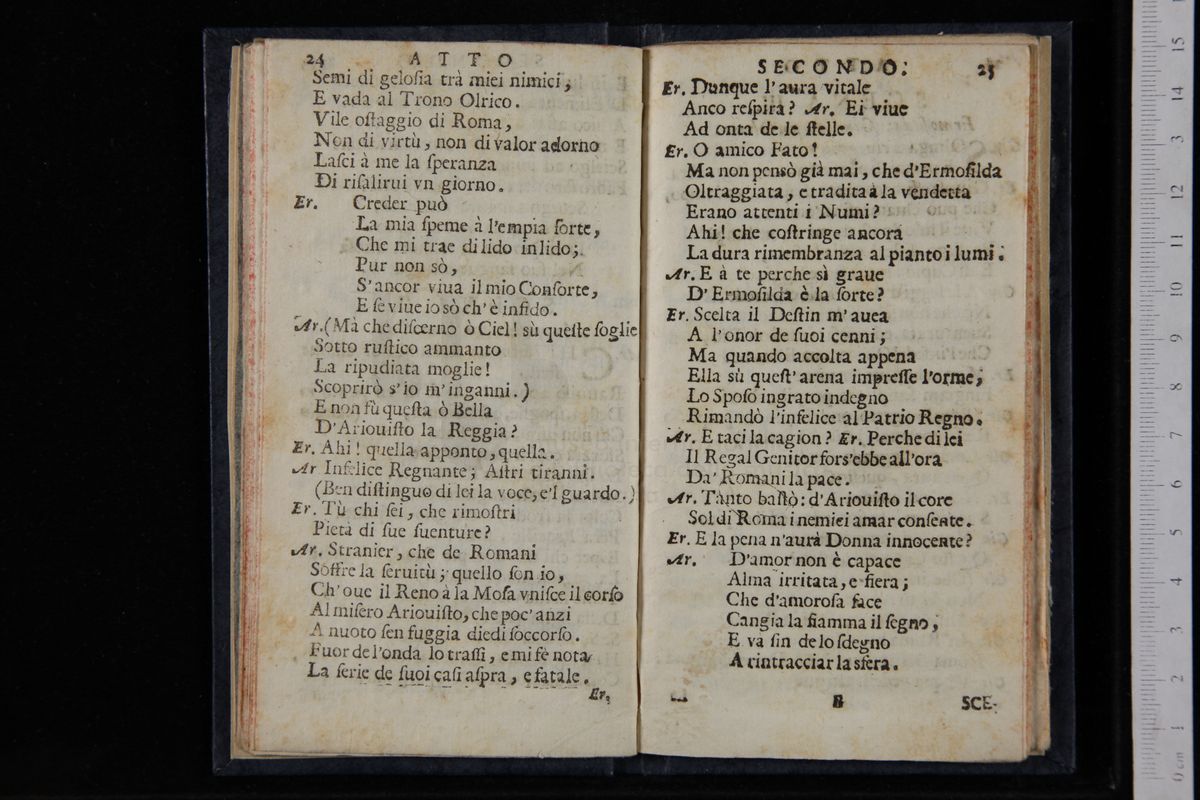 24 ATTO
Semi di geloſia trà miei nimici,
E vada al Trono Olrico.
Vile oſtaggio di Roma,
Non di virtù, non di valor adorno
Laſci à me la ſperanza
Di riſalirui vn giorno.
Er. Creder può
La mia ſpeme à l'empia ſorte,
Che mi trae di lido in lido;
Pur non sò,
S'ancor viua il mio Conſorte,
E ſe viue io sò ch'è infido.
Ar. (Mà che diſcerno ò Ciel! sù queſte ſoglie
Sotto ruſtico ammanto
La ripudiata moglie!
Scoprirò s'io m'inganni.)
E non fù queſta ò Bella
D'Ariouiſto la Reggia?
Er. Ahi! quella apponto, quella.
Ar Infelice Regnante; Aſtri tiranni.
(Ben diſtinguo di lei la voce, e'l guardo.)
Er. Tù chi ſei, che rimoſtri
Pietà di ſue ſuenture?
Ar. Stranier, che de Romani
Soffre la ſeruitù; quello ſon io,
Ch'oue il Reno à la Moſa vniſce il corſo
Al miſero Ariouiſto, che poc'anzi
A nuoto ſen fuggia diedi ſoccorſo.
Fuor de l'onda lo traſſi, e mi fè nota
La ſerie de ſuoi caſi aſpra, e fatale.
Er.
SECONDO. 25
Er. Dunque l'aura vitale
Anco reſpira? Ar. Ei viue
Ad onta de le ſtelle.
Er. O amico Fato!
Ma non pensò già mai, che d'Ermoſilda
Oltraggiata, e tradita à la vendetta
Erano attenti i Numi?
Ahi! che coſtringe ancora
La dura rimembranza al pianto i lumi.
Ar. E à te perche sì graue
D'Ermoſilda è la ſorte?
Er. Scelta il Deſtin m'auea
A l'onor de ſuoi cenni;
Ma quando accolta appena
Ella sù queſt'arena impreſſe l'orme,
Lo Spoſo ingrato indegno
Rimandò l'infelice al Patrio Regno.
Ar. E taci la cagion? Er. Perche di lei
Il Regal Genitor fors'ebbe all'ora
Da' Romani la pace.
Ar. Tanto baſtò: d'Ariouiſto il core
Sol di Roma i nemici amar conſente.
Er. E la pena n'aurà Donna innocente?
Ar. D'amor non è capace
Alma irritata, e fiera;
Che d'amoroſa face
Cangia la fiamma il ſegno,
E va ſin de lo ſdegno
A rintracciar la sfera.
B SCE-